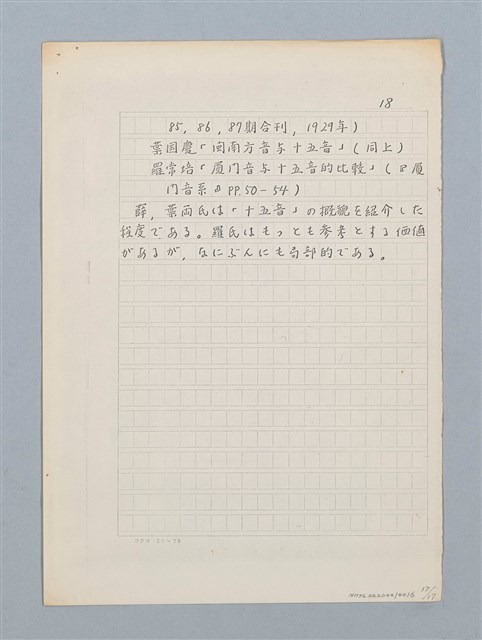 18
85, 86, 87期合刊, 1929年)
葉国慶「闽南方音与十五音」(同上)
羅常培「厦门音与十五音的比較」(『厦
门音系』PP.50-54)
薛, 葉両氏は「十五音」の概貌を紹介した
程度である。羅氏はもっとも参考とする価値
があるが, なにぶんにも局部的である。
17/
17